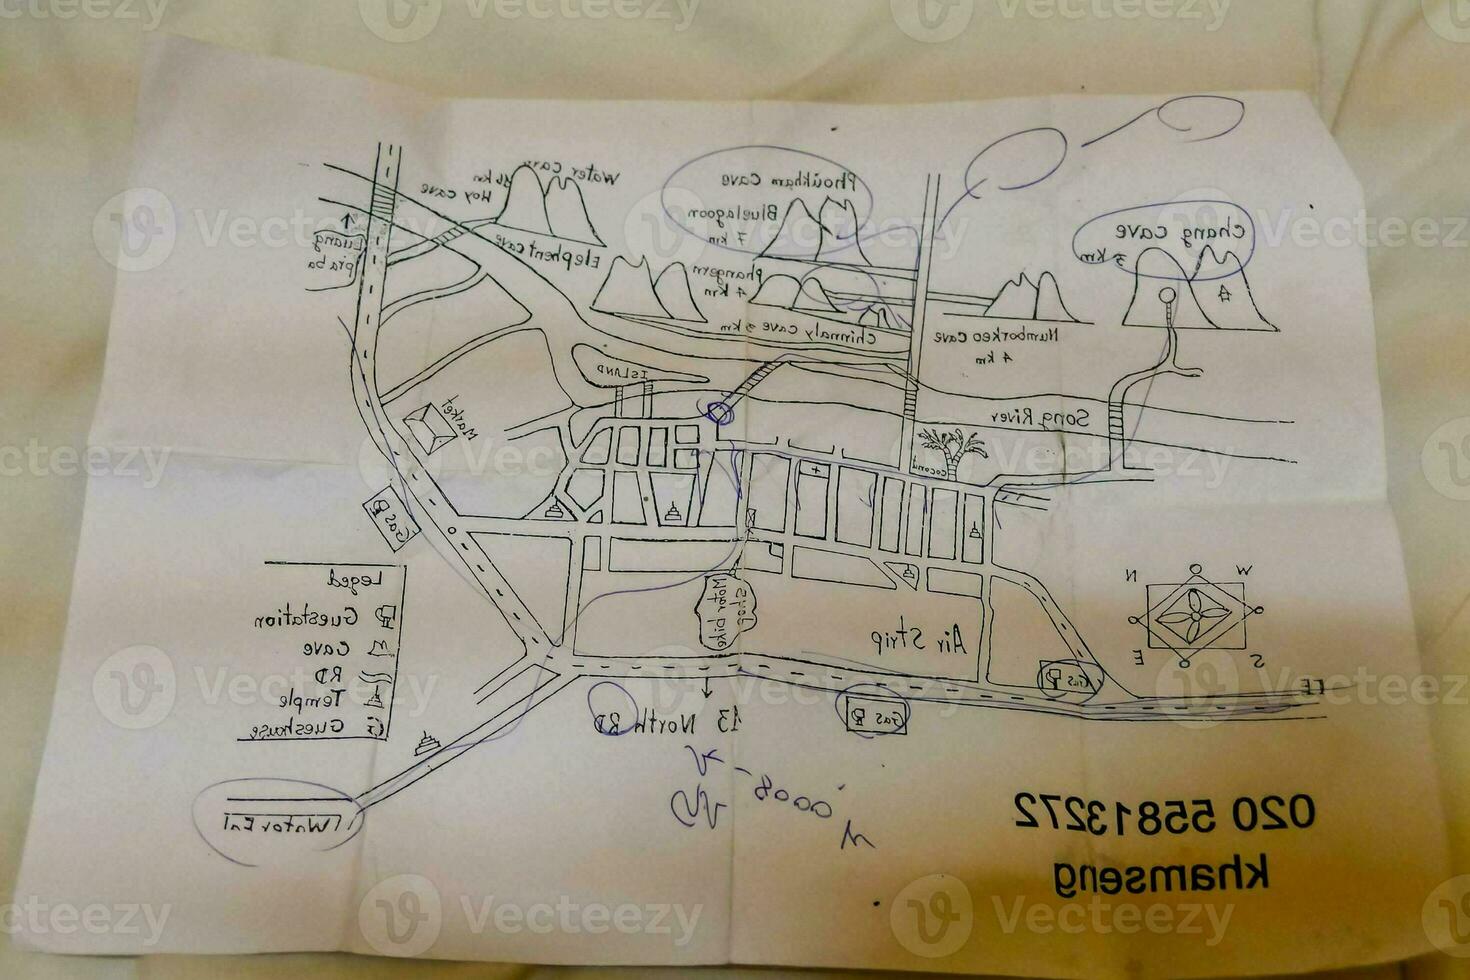 Water Cave
Hoy cave
Elephent cave
Phoukham Cave
Bluelagoon
7 km
Phangern
4 km
Chinnaly Cave 3 km
Chang Cave
3 km
Numborkeo Cave
4 km
Luang
praba
ISLAND
Song River
Market
Coconut
Gas
Motor bike
Shop
Air Strip
N
W
E
S
Gas
Gas
13 North RD
Leged
Guestation
Cave
RD
Temple
Gueshouse
020 55813272
khamseng
Vecteezy